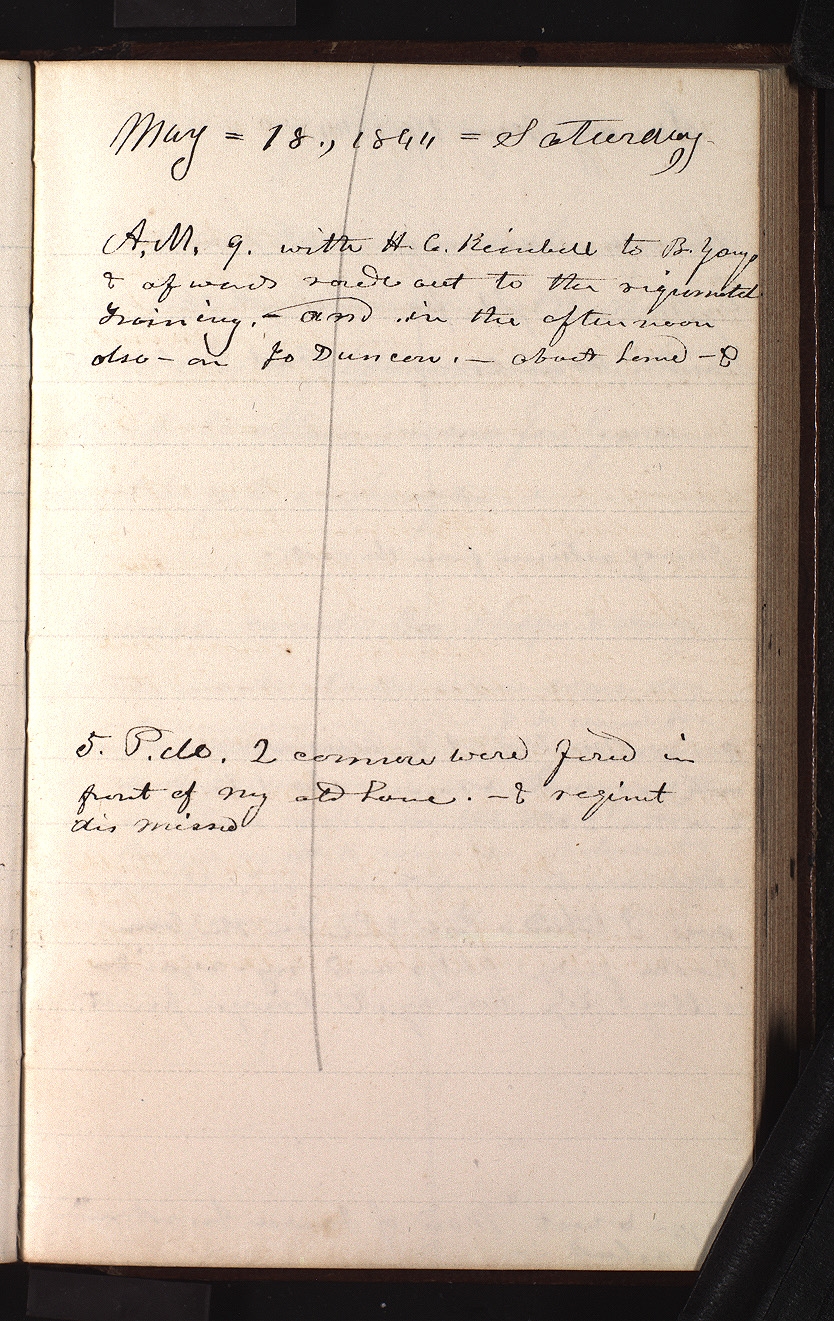 May = 18., 1844 = Saturday
A.M. 9. with H. C. Kimball to B. Youngs
& afwards rode out to the regimental
Training. — and in the afternoon
also — on Jo Duncan. — about home — &
5. P.M. 2 cannon were fired in
front of my old house. — & regimt
dis missed